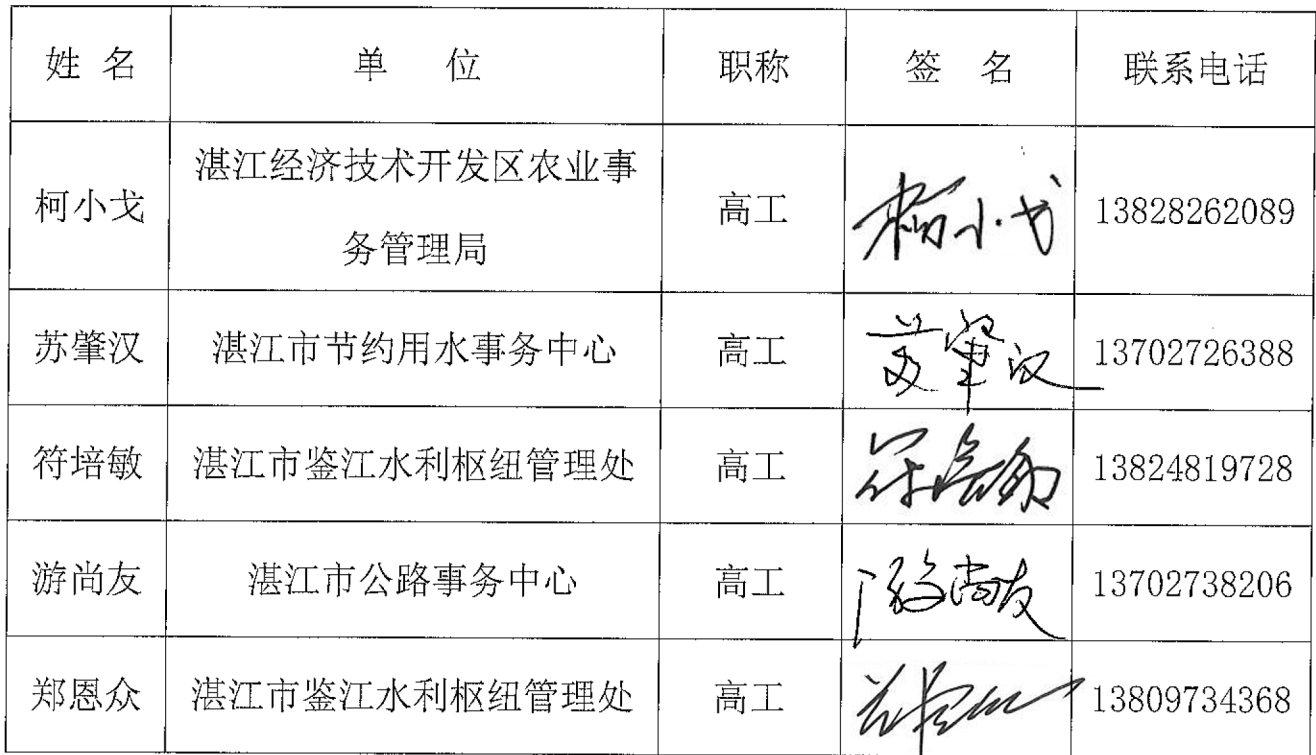 姓 名 单 位 职称 签 名 联系电话
柯小戈 湛江经济技术开发区农业事 高工 柯小戈 13828262089
务管理局
苏肇汉 湛江市节约用水事务中心 高工 苏肇汉 13702726388
符培敏 湛江市鉴江水利枢纽管理处 高工 符培敏 13824819728
游尚友 湛江市公路事务中心 高工 游尚友 13702738206
郑恩众 湛江市鉴江水利枢纽管理处 高工 郑恩众 13809734368